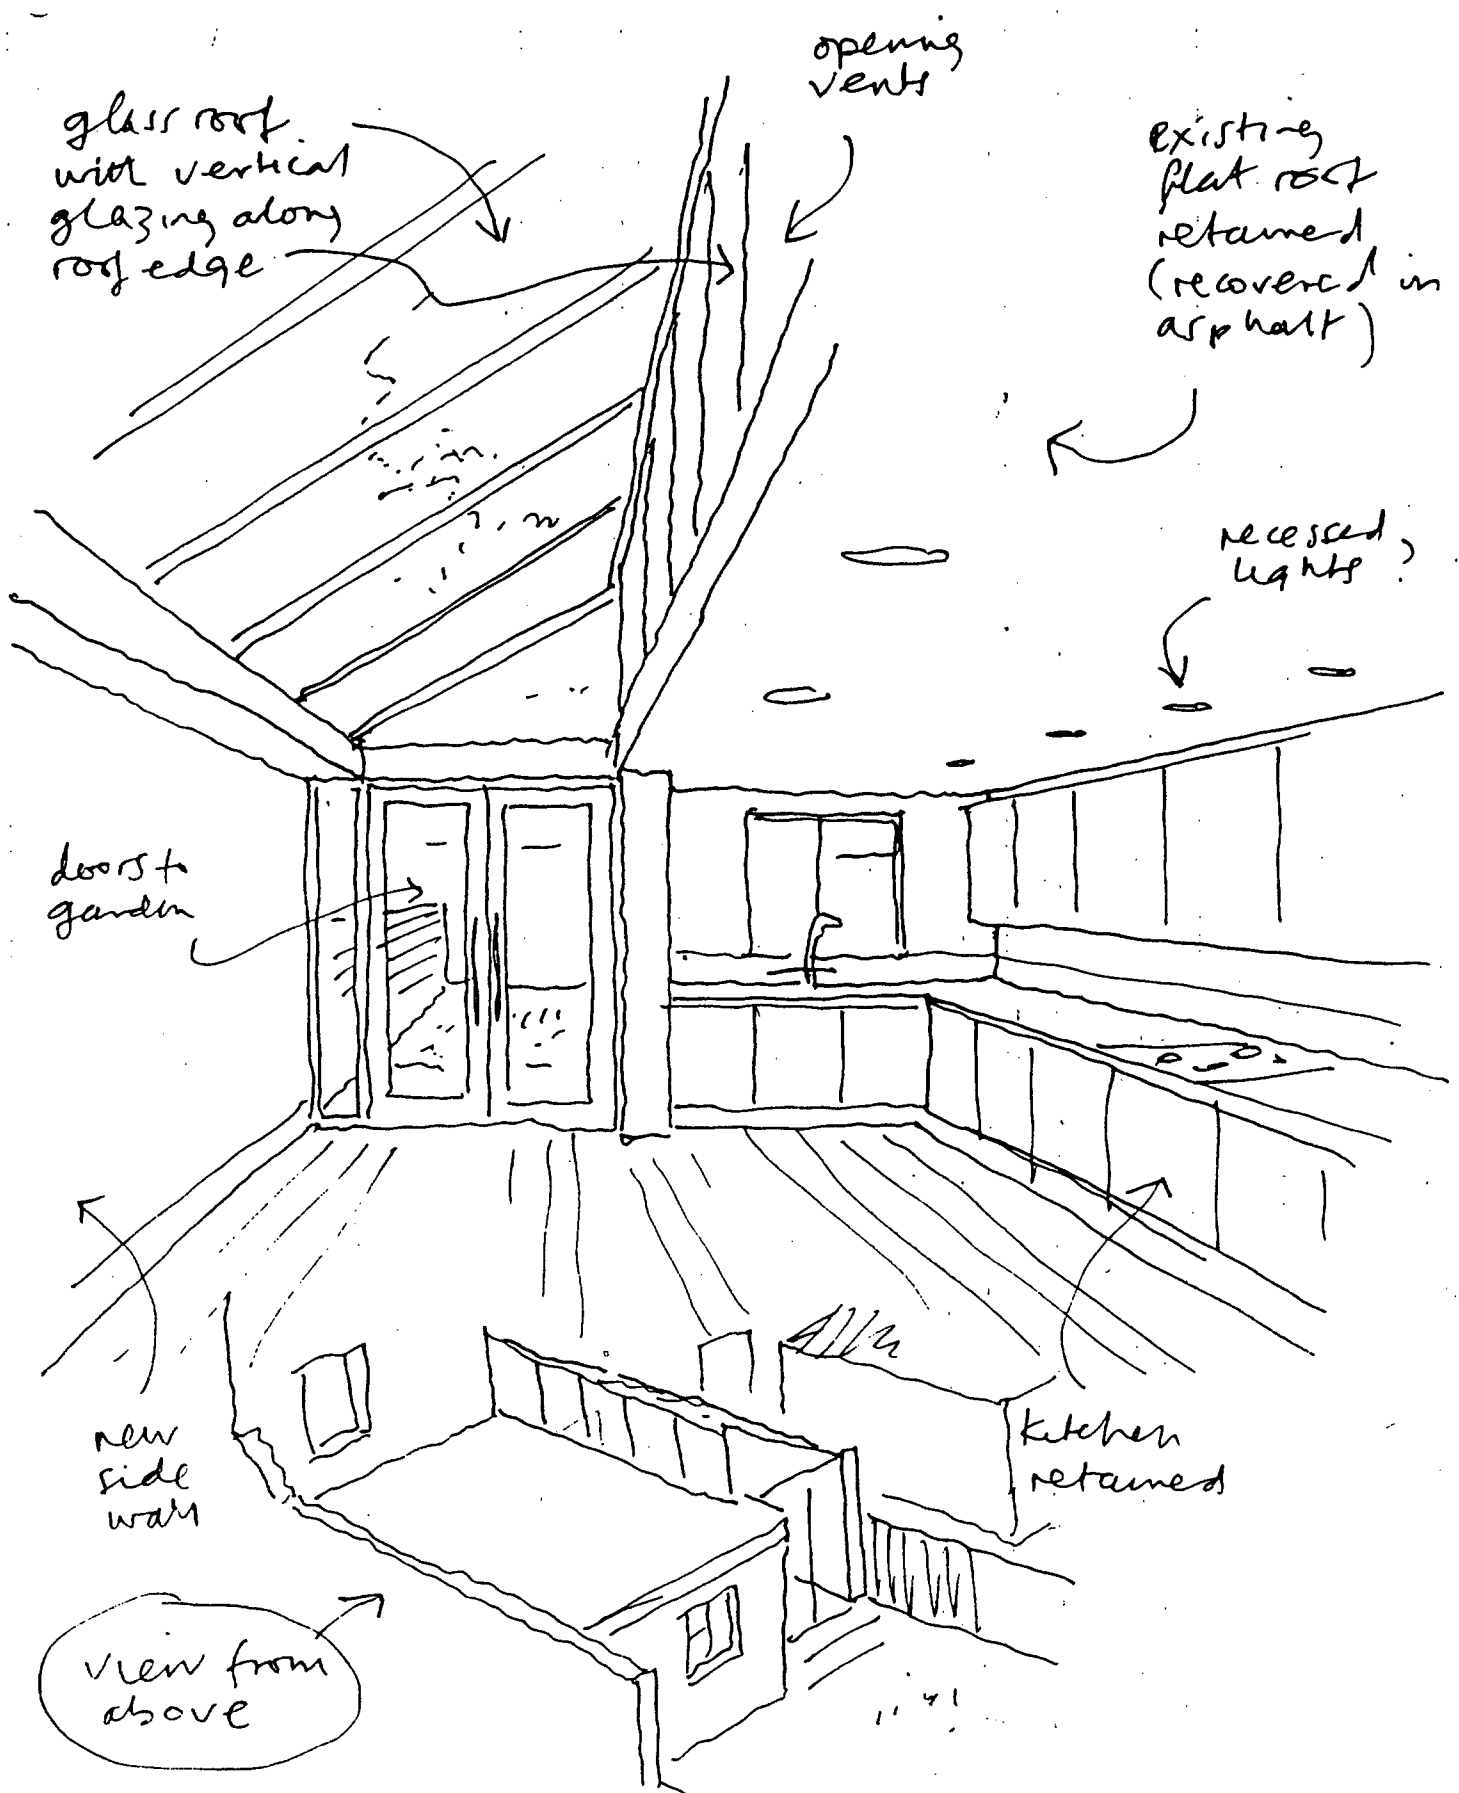 opening
vents
glass roof
with vertical
glazing along
roof edge
existing
flat roof
retained
(recovered in
asphalt)
recessed
lights?
doors to
garden
new
side
wall
kitchen
retained
view from
above